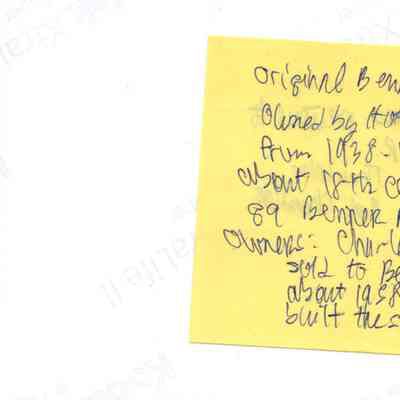 Original Ben
Owned by Ho
from 1938-
about 18th c
89 Benner
Owners: Charl
sold to Be
about 1958
built the s